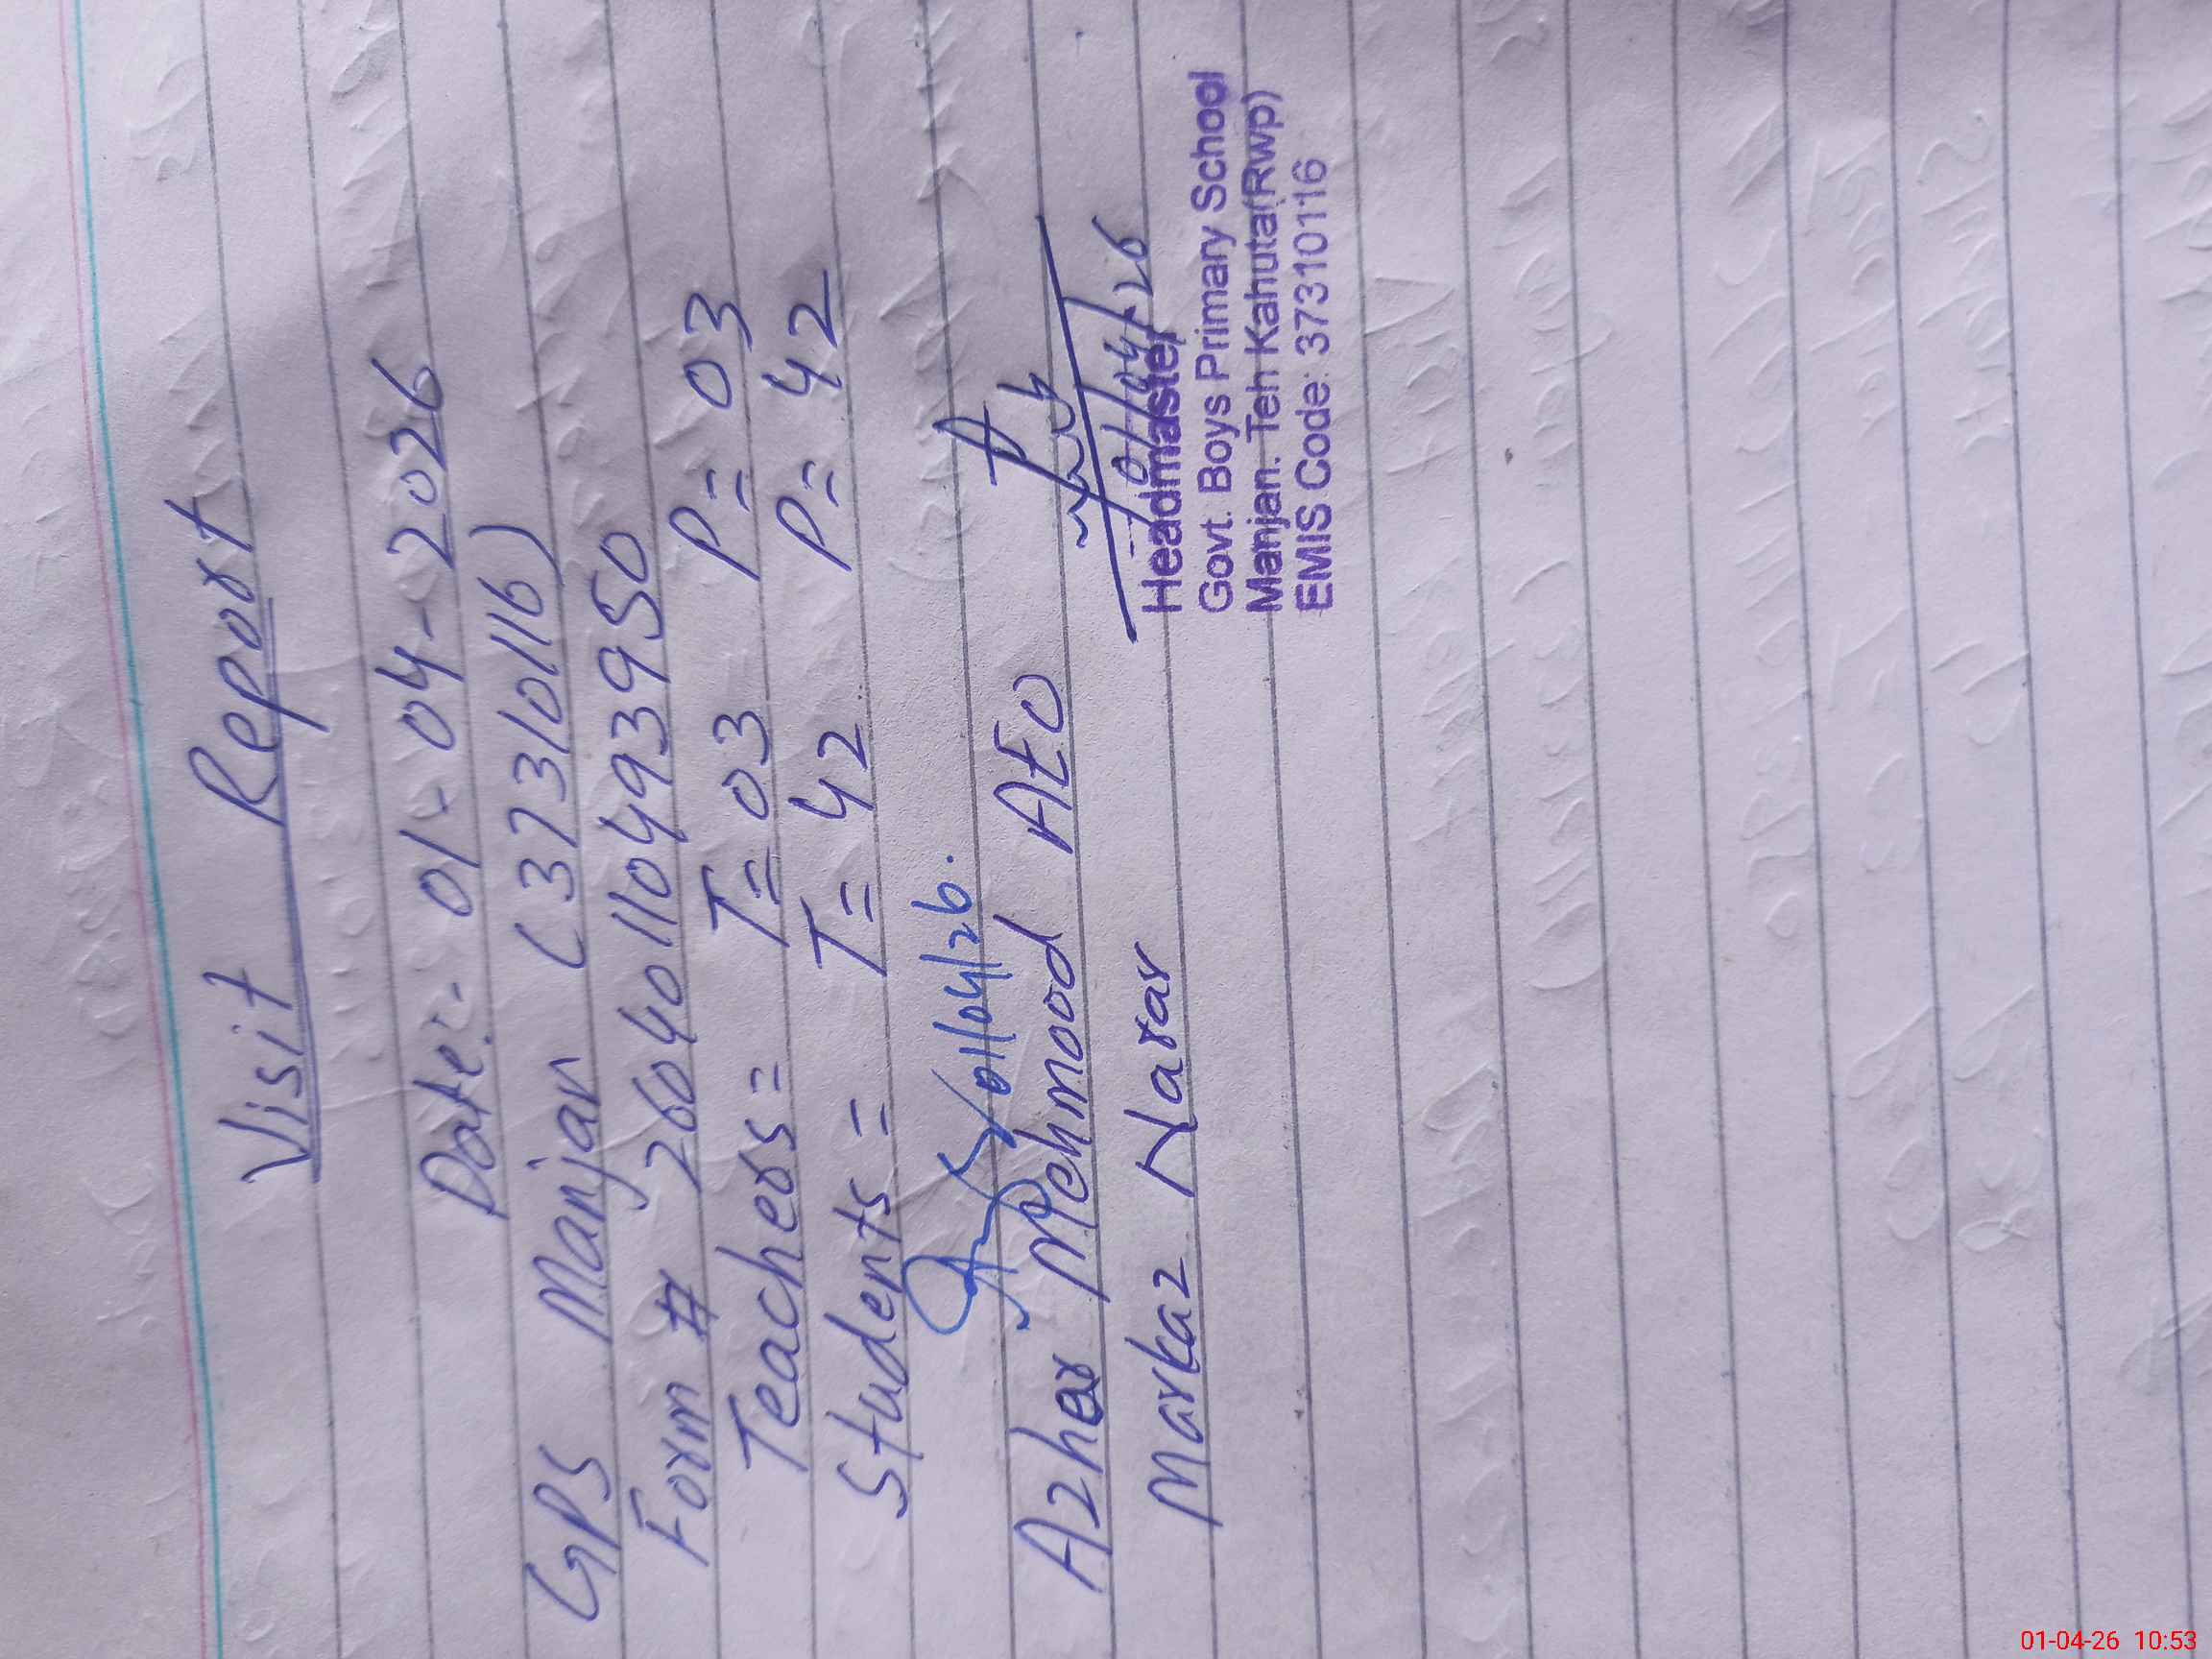 Visit Report
Date:- 01-04-2026
GPS Manjan (37310116)
Form # 26040110493950
Teachers= T= 03 P= 03
Students= T= 42 P= 42
01/04/26.
Azher Mehmood AEO
Markaz Narar
01/04/26
Headmaster
Govt. Boys Primary School
Manjan. Teh Kahuta(Rwp)
EMIS Code: 37310116
01-04-26 10:53